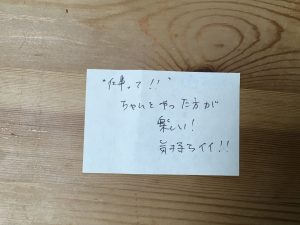 "仕事って!!"
ちゃんとやった方が
楽しい!
気持ちイイ!!